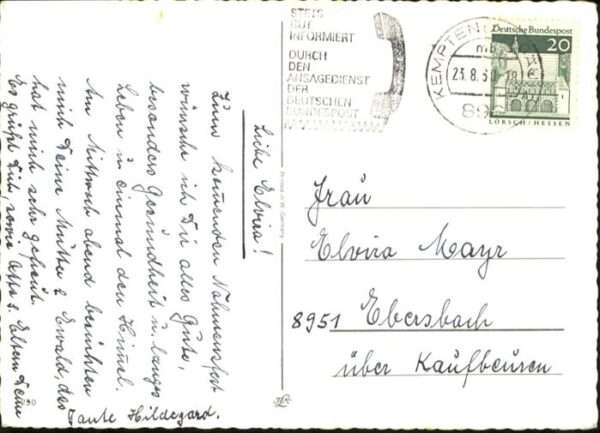 Liebe Elvira!
Zum kommenden Nahmensfest
wünsche ich Dir alles Gute,
besonders Gesundheit u. langes
Leben u einmal den Himmel.
Am Mittwoch abend besuchten
mich Deine Mutter u Ewald, das
hat mich sehr gefreut.
Es grüßt Dich, sowie Otto u. Eltern Deine
Tante Hildegard.
STETS
GUT
INFORMIERT
DURCH
DEN
ANSAGEDIENST
DER
DEUTSCHEN
BUNDESPOST
KEMPTEN
23.8.6
Deutsche Bundespost
20
LORSCH/HESSEN
Frau
Elvira Mayr
8951 Ebersbach
über Kaufbeuren